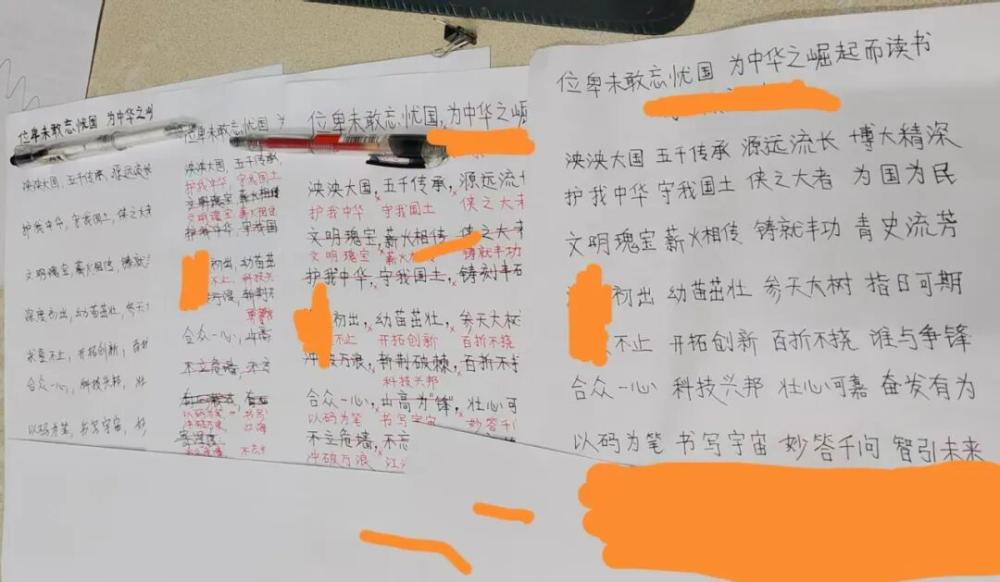 位卑未敢忘忧国 为中华之
泱泱大国, 五千传承, 源远流长
护我中华, 守我国土, 侠之大者
文明瑰宝, 薪火相传, 铸就
初出, 幼苗茁壮, 参天
不止, 开拓创新, 百折
合众一心, 科技兴邦, 壮
以码为笔, 书写宇宙, 妙
位卑未敢忘忧国
泱泱大国, 五千传承
护我中华, 守我国土
文明瑰宝 薪火相传
文明瑰宝 薪火相传
护我中华, 守我国
初出, 幼苗茁
不止, 科技兴
合众一心, 山高
不立危墙, 不
以码为笔, 书写
冲破万浪
位卑未敢忘忧国, 为中华之崛
泱泱大国, 五千传承, 源远流
护我中华 守我国土 侠之大者
文明瑰宝, 薪火相传, 侠之大者
文明瑰宝 薪火 铸就丰功
护我中华, 守我国土, 铸刻丰
初出, 幼苗茁壮, 参天大树
不止 开拓创新 百折不挠
冲破万浪, 斩荆破棘, 百折不
科技兴邦
合众一心, 山高为"锋", 壮心可
以码为笔 书写宇宙 妙答千
不立危墙, 不忘
冲破万浪 江
位卑未敢忘忧国 为中华之崛起而读书
泱泱大国 五千传承 源远流长 博大精深
护我中华 守我国土 侠之大者 为国为民
文明瑰宝 薪火相传 铸就丰功 青史流芳
初出 幼苗茁壮 参天大树 指日可期
不止 开拓创新 百折不挠 谁与争锋
合众一心 科技兴邦 壮心可嘉 奋发有为
以码为笔 书写宇宙 妙答千问 智引未来